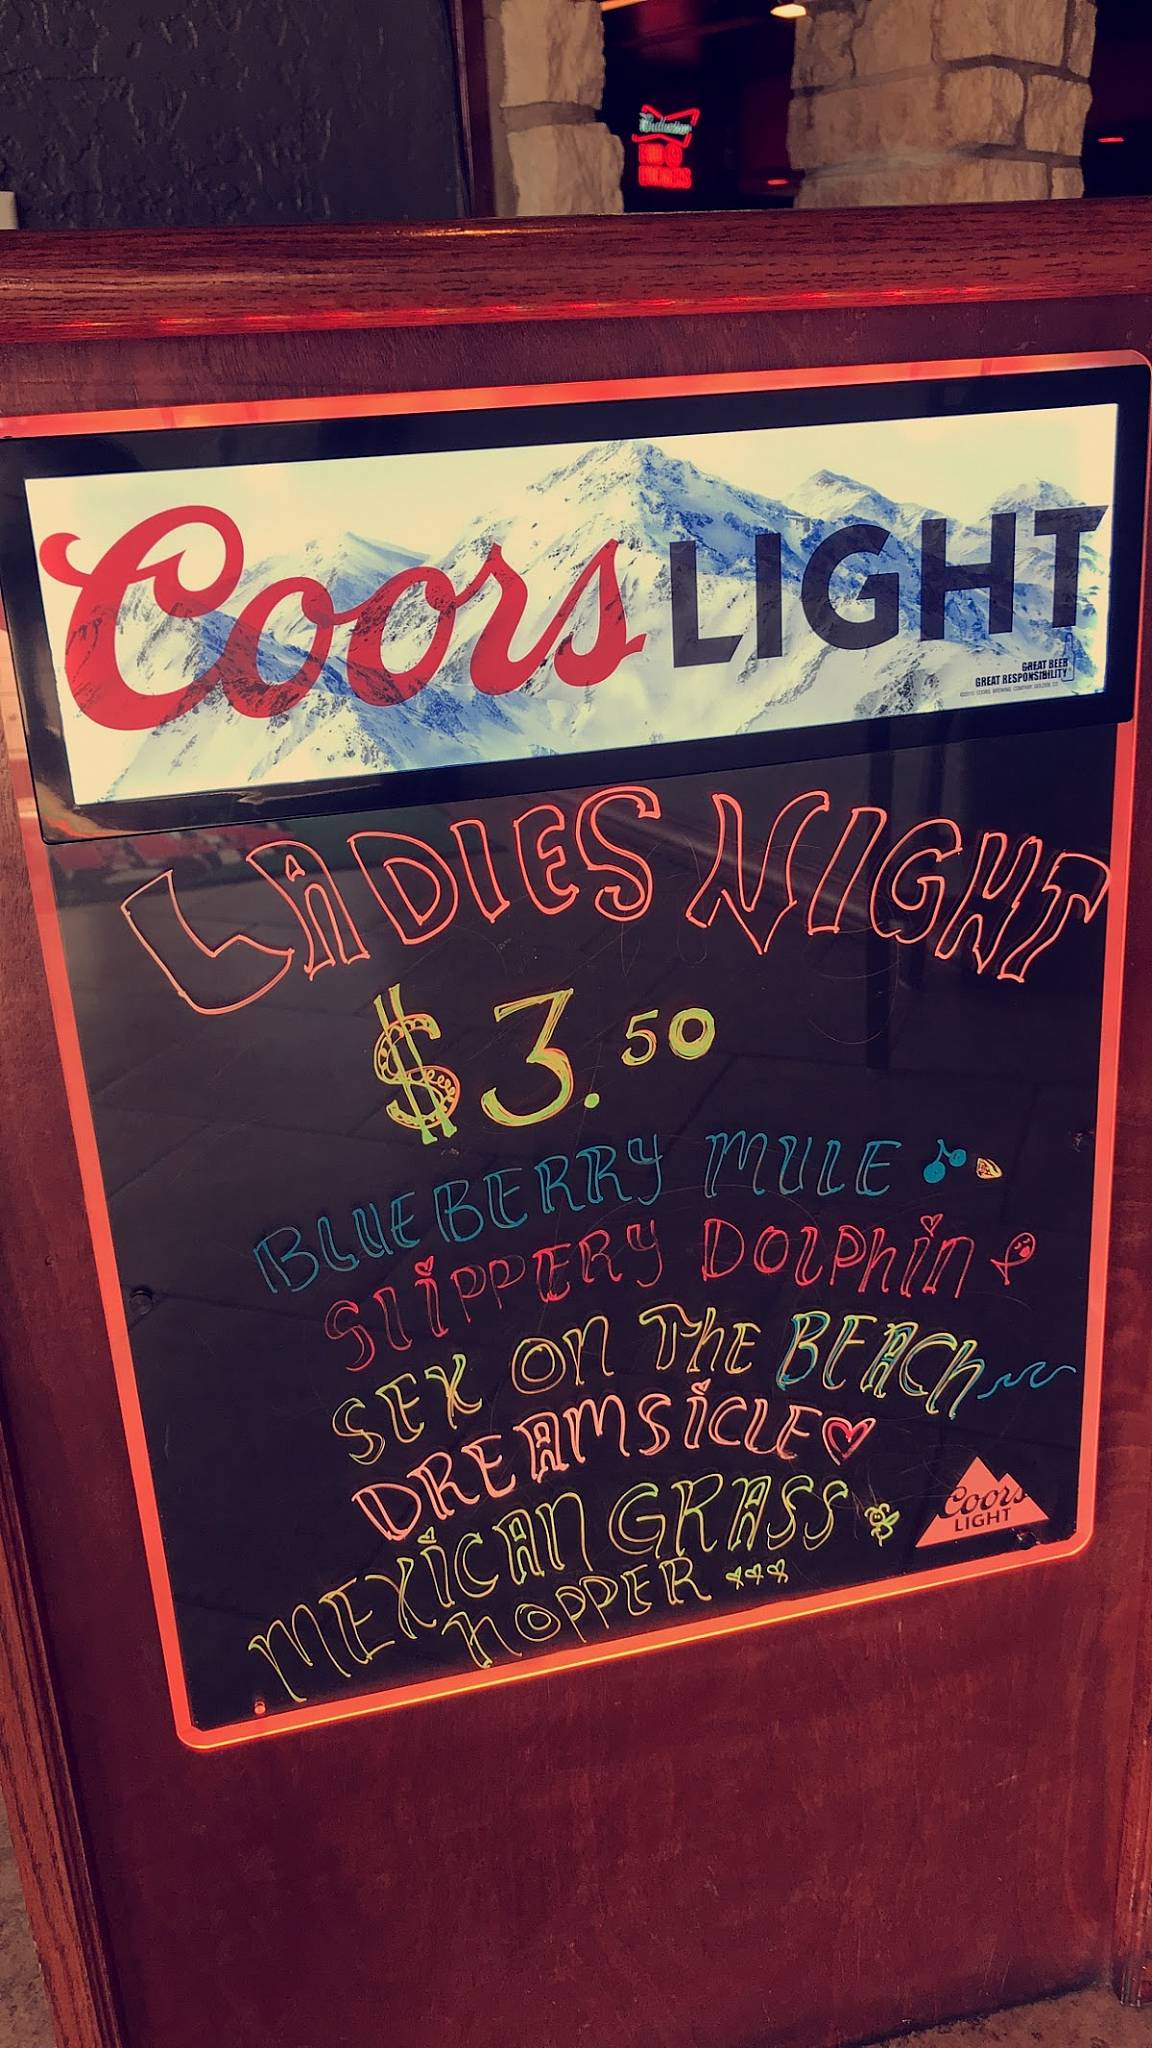 Budweiser
Coors LIGHT
GREAT BEER
GREAT RESPONSIBILITY
LADIES NIGHT
$3.50
BLUEBERRY MULE
SLIPPERY DOLPHIN
SEX ON THE BEACH
DREAMSICLE
MEXICAN GRASS
HOPPER
Coors
LIGHT